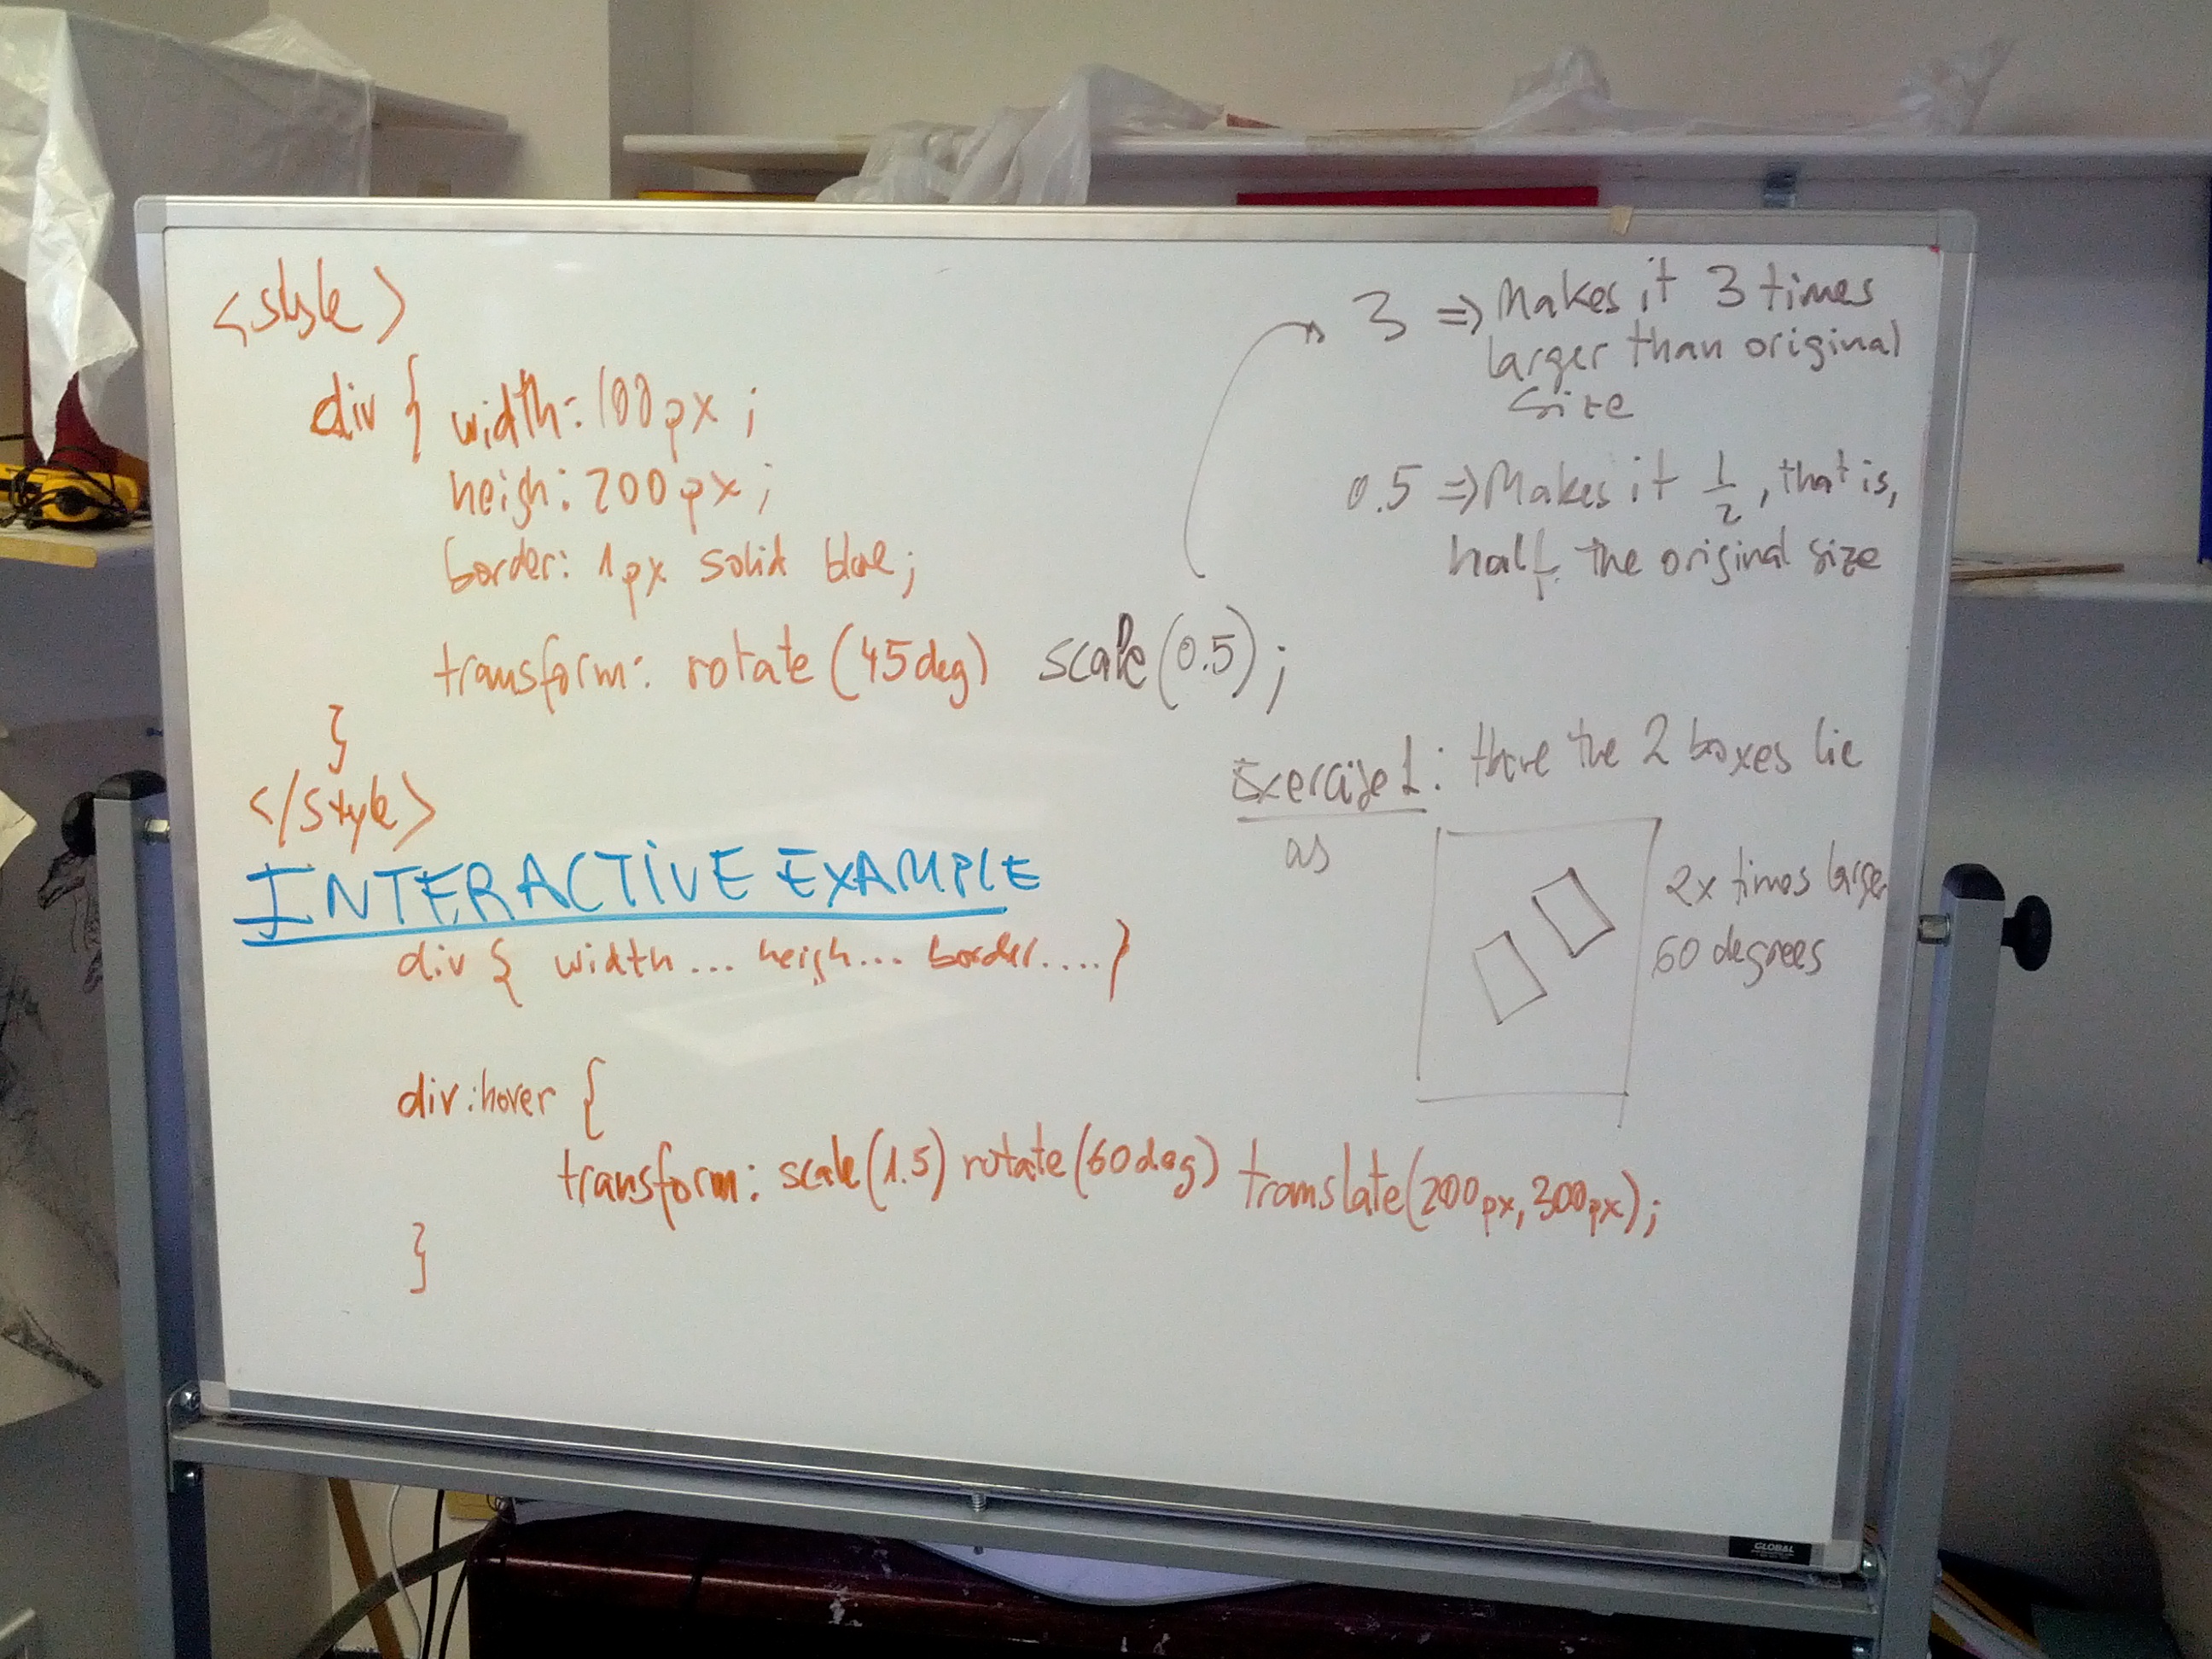 <style>
div { width: 100px ;
heigh: 200px ;
border: 1px solid blue;
transform: rotate (45deg) scale(0.5);
}
</style>
3 => Makes it 3 times
larger than original
size
0.5 => Makes it 1/2, that is,
half the original size
Exercise 1: Have the 2 boxes lie
as
2x times larger
60 degrees
INTERACTIVE EXAMPLE
div { width... heigh... border.... }
div:hover {
transform: scale(1.5) rotate(60deg) translate(200px,300px);
}
GLOBAL